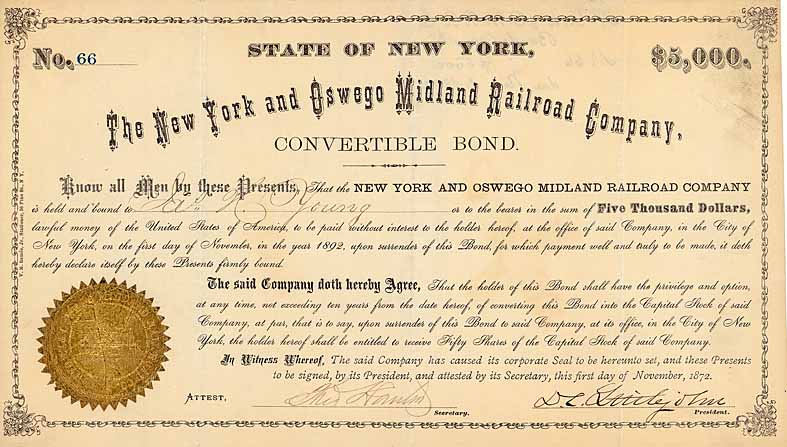 No. 66
STATE OF NEW YORK,
$5,000.
The New York and Oswego Midland Railroad Company,
CONVERTIBLE BOND.
Know all Men by these Presents, That the NEW YORK AND OSWEGO MIDLAND RAILROAD COMPANY
is held and bound to Young or to the bearer in the sum of Five Thousand Dollars,
lawful money of the United States of America, to be paid without interest to the holder hereof, at the office of said Company, in the City of
New York, on the first day of November, in the year 1892, upon surrender of this Bond, for which payment well and truly to be made, it doth
hereby declare itself by these Presents firmly bound.
The said Company doth hereby Agree, That the holder of this Bond shall have the privilege and option,
at any time, not exceeding ten years from the date hereof, of converting this Bond into the Capital Stock of said
Company, at par, that is to say, upon surrender of this Bond to said Company, at its office, in the City of New
York, the holder hereof shall be entitled to receive Fifty Shares of the Capital Stock of said Company.
In Witness Whereof, The said Company has caused its corporate Seal to be hereunto set, and these Presents
to be signed, by its President, and attested by its Secretary, this first day of November, 1872.
ATTEST,
D. C. Littlejohn
Secretary.
President.